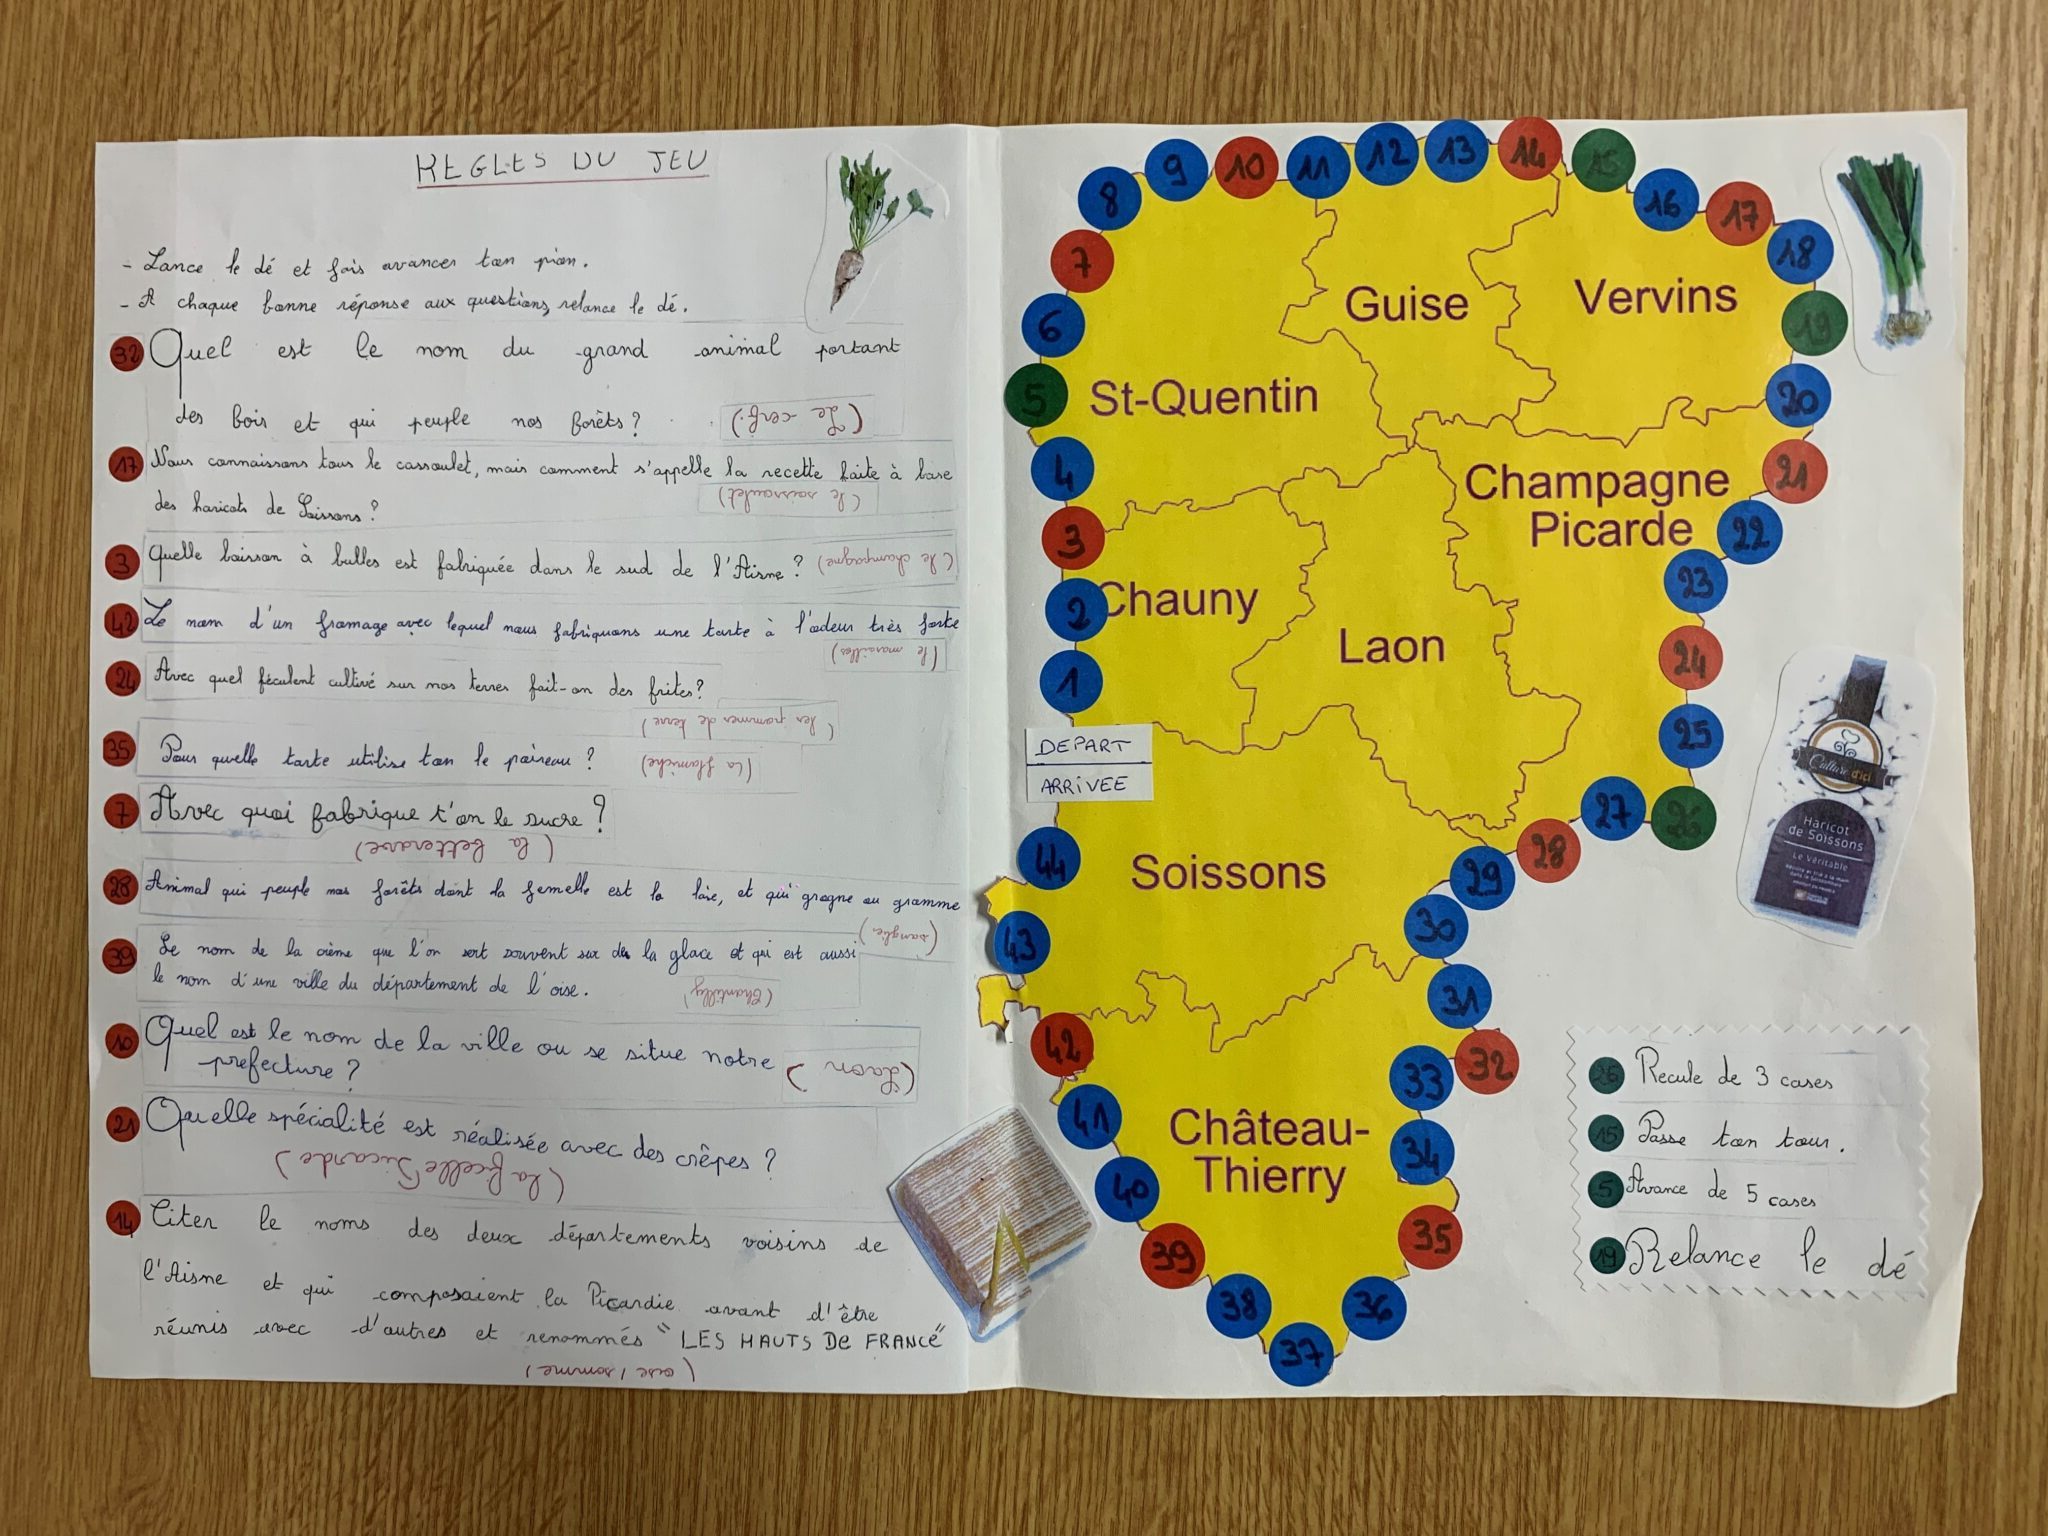 REGLES DU JEU
- Lance le dé et fais avancer ton pion.
- A chaque bonne réponse aux questions, relance le dé.
32 Quel est le nom du grand animal portant
des bois et qui peuple nos forêts ?
(Le cerf.)
17 Nous connaissons tous le cassoulet, mais comment s'appelle la recette faite à base
des haricots de Soissons ?
(le soissoulet)
3 Quelle boisson à bulles est fabriquée dans le sud de l'Aisne ? (le champagne)
42 Le nom d'un fromage avec lequel nous fabriquons une tarte à l'odeur très forte
(le maroilles)
24 Avec quel féculent cultivé sur nos terres fait-on des frites ?
(les pommes de terre)
35 Pour quelle tarte utilise ton le poireau ? (la flamiche)
7 Avec quoi fabrique t'on le sucre ?
(la betterave)
28 Animal qui peuple nos forêts dont la femelle est la laie, et qui grogne ou gramme
(sanglier)
39 Le nom de la crème que l'on sert souvent sur de la glace et qui est aussi
le nom d'une ville du département de l'oise.
(Chantilly)
10 Quel est le nom de la ville ou se situe notre
prefecture ?
(Laon)
21 Quelle spécialité est réalisée avec des crêpes ?
(la ficelle Picarde)
14 Citer le noms des deux départements voisins de
l'Aisne et qui composaient la Picardie avant d'être
réunis avec d'autres et renommés "LES HAUTS DE FRANCE"
(oise / somme)
8 9 10 11 12 13 14 15 16 17 18
7
6
5
4
3
2
1
19
20
21
22
23
24
25
26
27
28
29
30
31
32
33
34
35
36
37
38
39
40
41
42
43
44
St-Quentin
Guise
Vervins
Champagne
Picarde
Chauny
Laon
DEPART
ARRIVEE
Soissons
Château-
Thierry
Culture d'ici
Haricot
de Soissons
Le Véritable
26 Recule de 3 cases
15 Passe ton tour.
5 Avance de 5 cases
19 Relance le dé